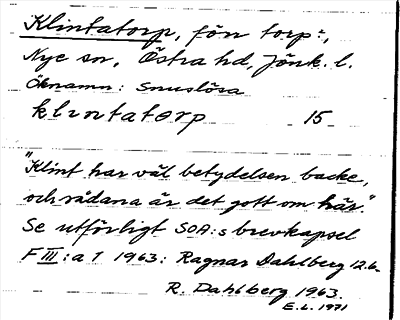 Klintatorp, förr torp:,
Nye sn, Östra hd, Jönk. l.
Öknamn: Snuslösa
klintatorp 15
"Klint har väl betydelsen backe,
och sådana är det gott om här."
Se utförligt SOA:s brevkapsel
F III: a 1 1963: Ragnar Dahlberg 12.6.
R. Dahlberg 1963.
E.L. 1971